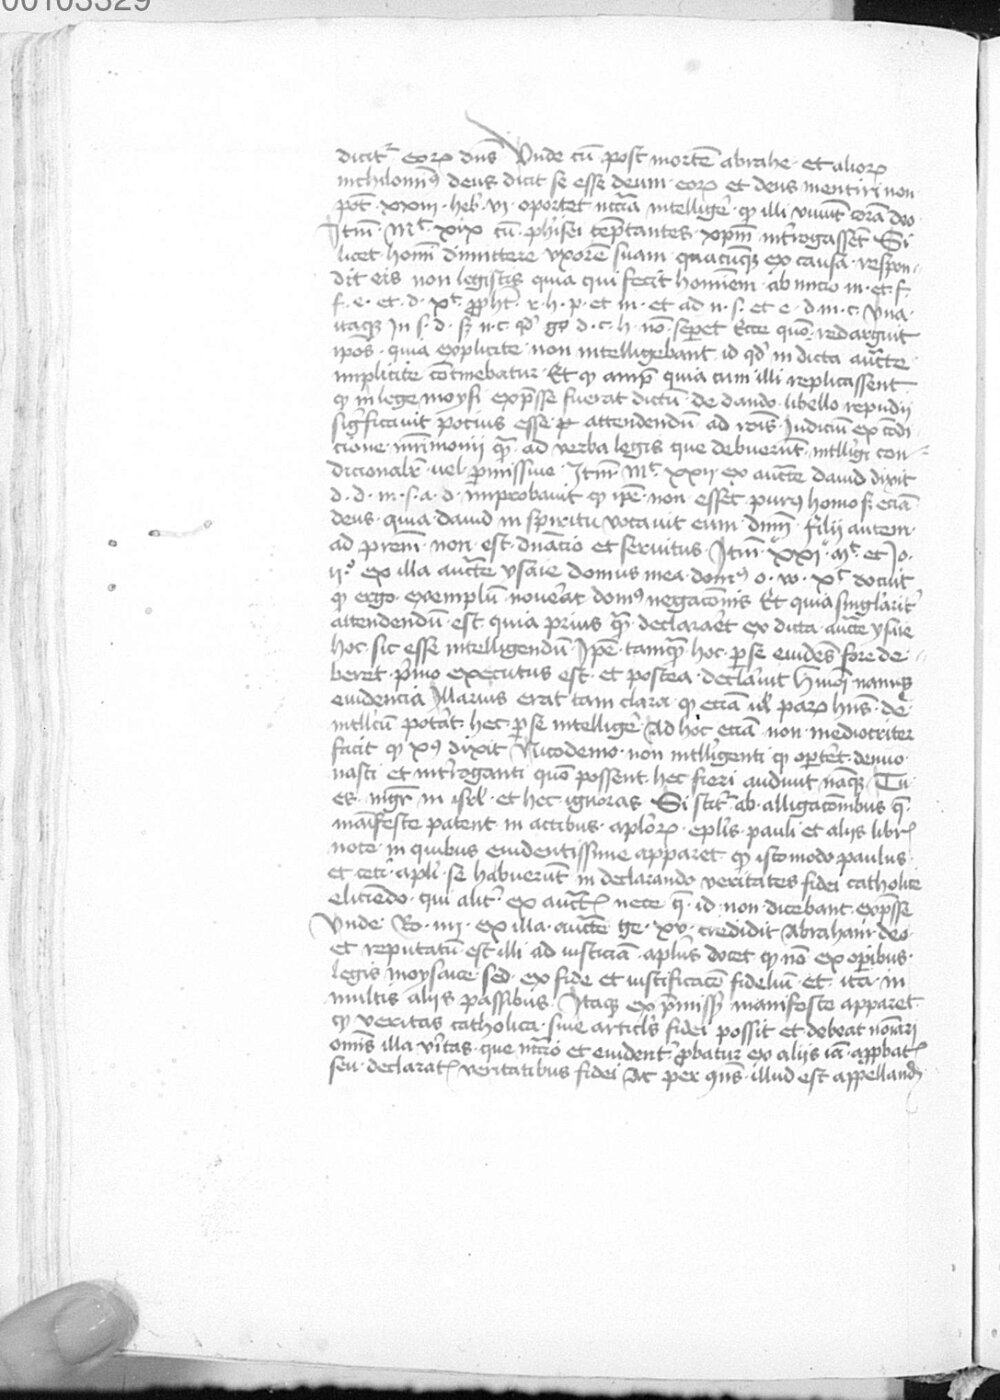 00103329
dicitr eorum dns Unde cu post mortē abrahe et aliorum
nichilominus deus dicit se esse deum eorum et deus mentiri non
pot xxiii heb vi oportet intelligere quod illi vivunt corā deo
Itm Mt xix cū pharisei teptantes xpm interrogassēt Si
licet homi dimittere vxorē suam quacunque ex causa respon
dit eis non legistis quia qui fecit hominem ab initio m et f
f. e. et. d. xc r. h. p. et m. et ad u. s. et e. d. m. c. Una
itaque in s. d. n. c. qd d. c. h. nō separet Ecce quō redarguit
ipos quia explicite non intelligebant id qd in dicta aucte
implicite cōtinebatur Et quia cum illi replicassent
quod in lege moysi expsse fuerat dictū de dando libello repudii
significavit potius esse attendendū ad iudiciū ex cōdi
cione mrimonii ad verba legis que debuerūt intlligi con
dicionalr vel pmissive Itm Mt xxii ex aucte david dixit
d. d. m. s. a. d. improbavit quod ipe non esset purus homo sed eciā
deus quia david in spiritu vocavit eum dnm filii autem
ad prem non est dnacio et servitus Itm xxi Mt et Jo
ii ex illa aucte ysaie domus mea domus o. v. xc docuit
quod ergo exemplū domus negacōnis Et quia singlarit
attendendū est quia prius declararet ex dicta aucte ysaie
hoc sic esse intelligendū Ipe tamquam hoc per se evidēs fore de
beret pmo executus est et postea declavit namque
evidencia illarius erat tam clara quod eciā parum hns de
intllcū poterat hec per se intelligere Ad hoc eciā non mediocriter
facit quod xc dixit Nicodemo non intlligenti quod oportet denuo
nasci et introganti quō possent hec fieri audivit namque Tu
es mgr in isrl et hec ignoras Si ab alligacōnibus que
manifeste patent in actibus aplorum eplis pauli et aliis libris
note in quibus evidentissime apparet quod istomodo paulus
et ceti apli se habuerūt in declarando veritates fidei catholice
eliciendo qui alit ex auctis id non dicebant expsse
Unde Ro iiii ex illa aucte ge xv credidit Abraham deo
et reputatū est illi ad iusticiam aplus docet quod nō ex operibus
legis moysaice sed ex fide et iustificacōe fideliū et ita in
multis aliis passibus Itaque ex pmissis manifeste apparet
quod veritas catholica sive articls fidei possit et debeat noiari
omis illa vitas que ncrio et evident pbatur ex aliis iā appbatis
seu declaratis veritatibus fidei Ac per qns illud est appellandum